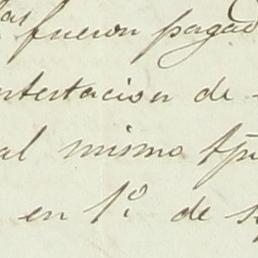 as
fueron pagad
ntestacion de
al mismo
en 1º. de